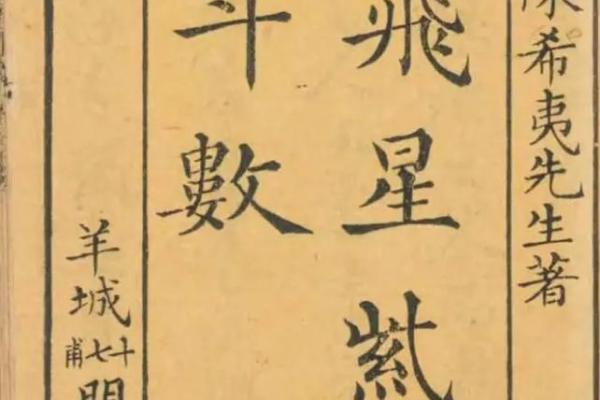 希夷先生著
飛星紫
斗數
羊城
十七甫